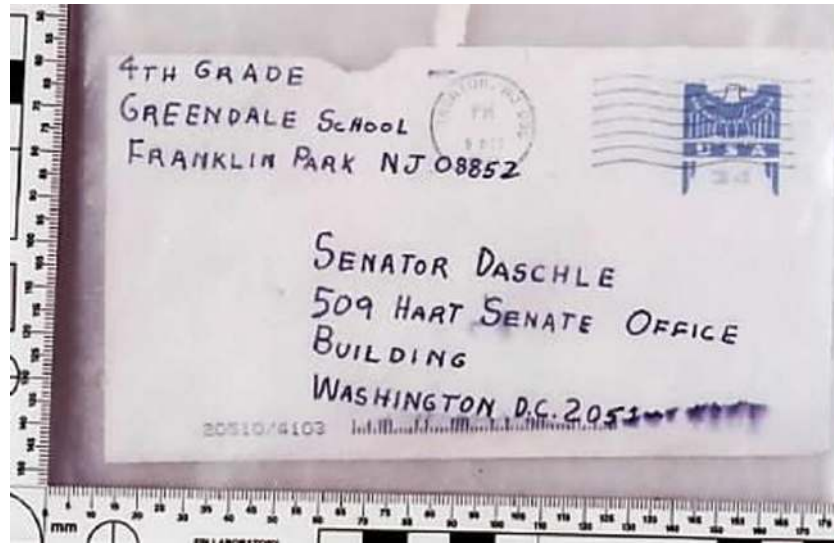 4TH GRADE
GREENDALE SCHOOL
FRANKLIN PARK NJ 08852
USA
34
SENATOR DASCHLE
509 HART SENATE OFFICE
BUILDING
WASHINGTON D.C. 2051
20510/4103
mm